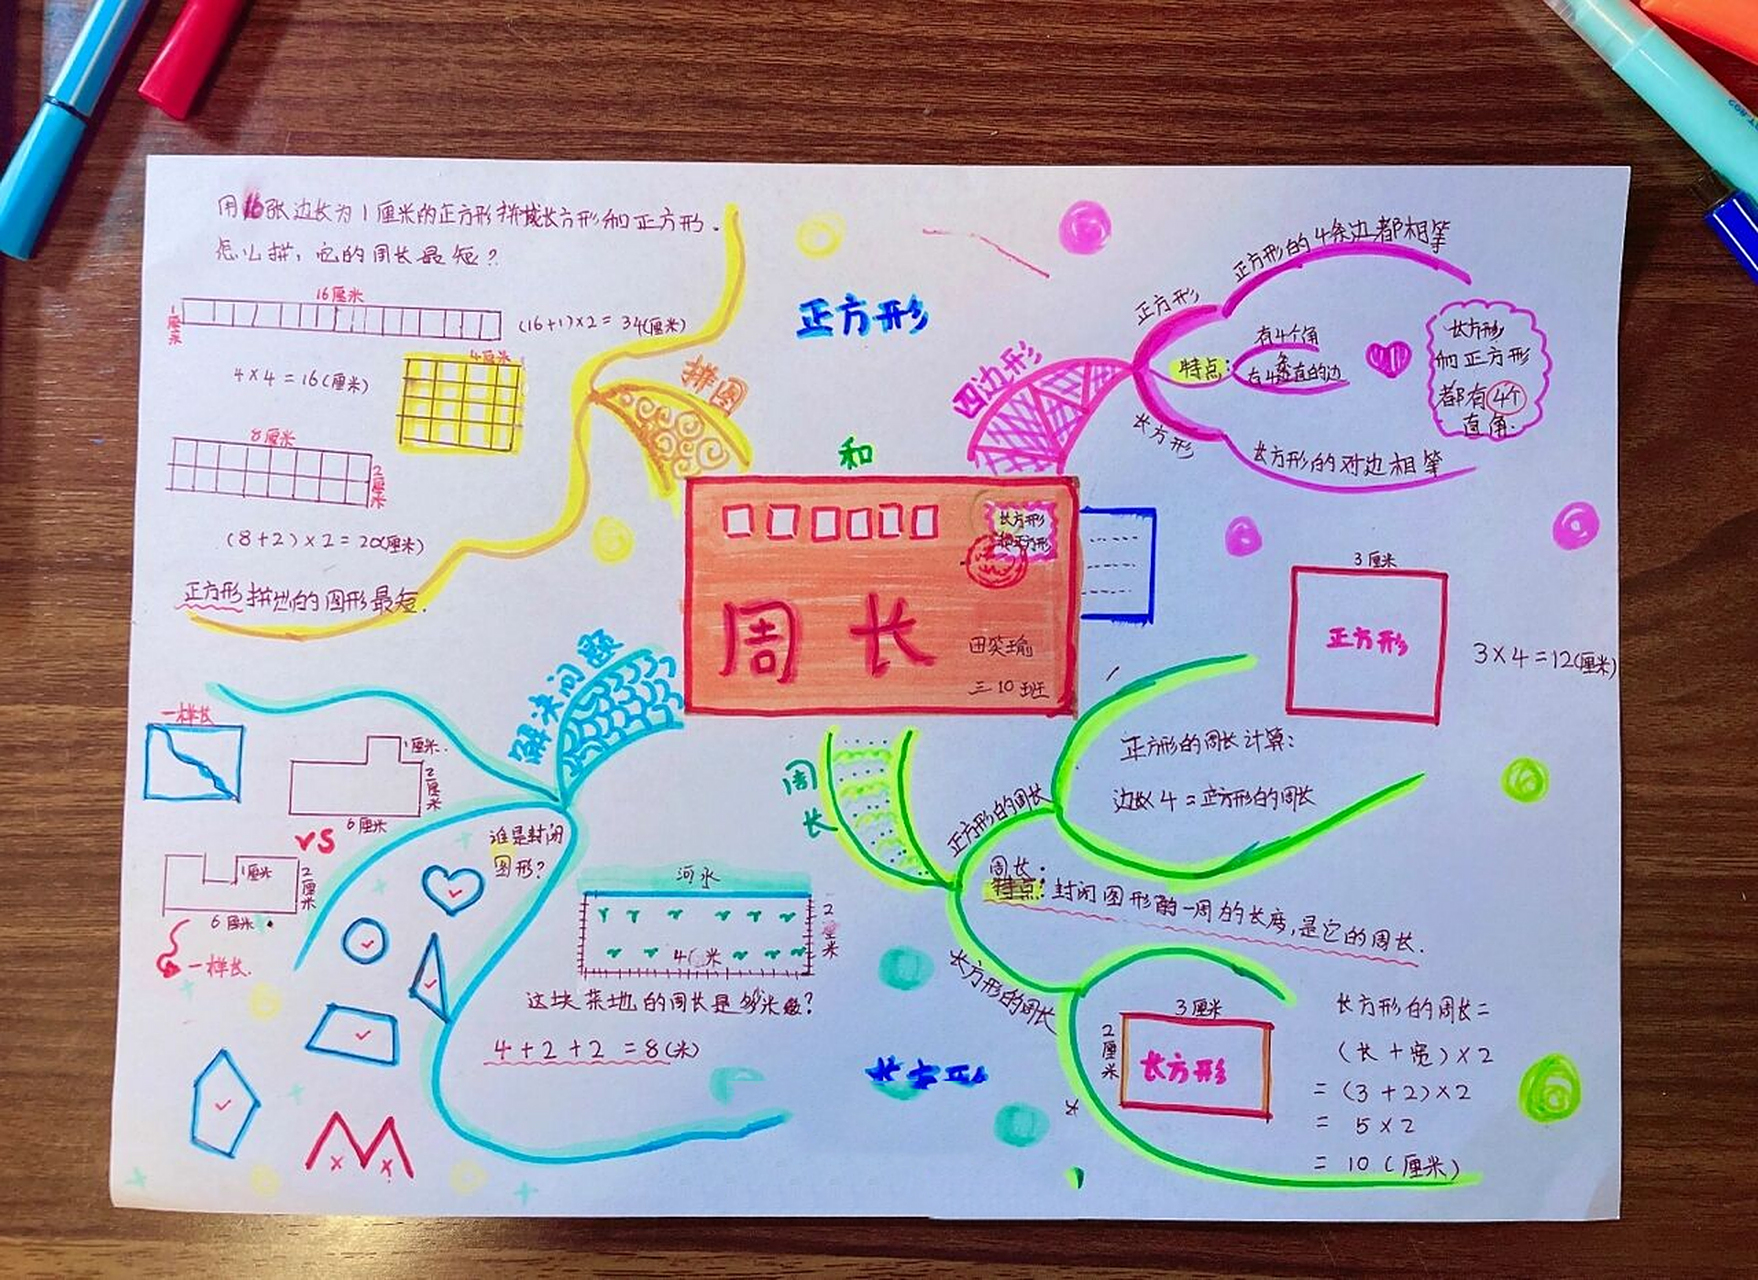 用16张边长为1厘米的正方形拼成长方形和正方形.
怎么拼,它的周长最短?
16厘米
1厘米
(16+1)×2=34(厘米)
4厘米
4×4=16(厘米)
8厘米
2厘米
(8+2)×2=20(厘米)
正方形拼出的图形最短.
拼图
正方形
和
长方形
四边形
正方形
正方形的4条边都相等
特点:
有4个角
有4条直的边
长方形
长方形的对边相等
长方形
和正方形
都有4个
直角.
长方形
和正方形
周长
田笑瑜
三10班
解决问题
一样长
1厘米.
2厘米
6厘米
VS
1厘米
2厘米
6厘米.
一样长.
谁是封闭
图形?
河水
2米
4米
这块菜地的周长是多少米?
4+2+2=8(米)
周长
正方形的周长
3厘米
正方形
3×4=12(厘米)
正方形的周长计算:
边长×4=正方形的周长
周长:
特点:封闭图形的一周的长度,是它的周长.
长方形的周长
3厘米
2厘米
长方形
长方形的周长=
(长+宽)×2
=(3+2)×2
=5×2
=10(厘米)